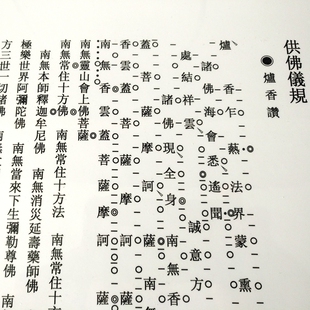 供佛儀規
◎爐香讚
爐香乍爇法界蒙熏
諸佛海會悉遙聞
處結祥雲誠意方
諸佛現全身南無香
蓋菩薩摩訶薩
香雲蓋菩薩摩訶薩
南無
南無靈山會上佛菩薩
南無常住十方佛 南無常住十方法 南無常住十
南無本師釋迦牟尼佛 南無消災延壽藥師佛
極樂世界阿彌陀佛 南無當來下生彌勒尊佛 南
方三世一切諸佛